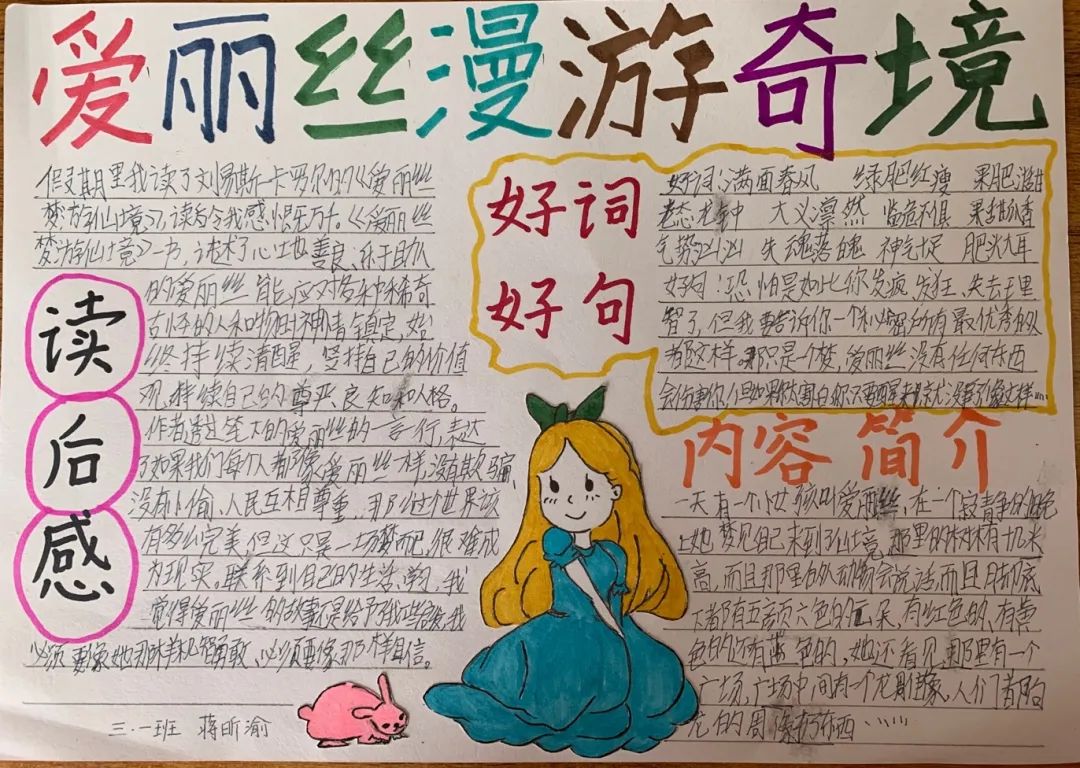 爱丽丝漫游奇境
读后感
假期里我读了刘易斯·卡罗尔的《爱丽丝
梦游仙境》,读后令我感慨万千。《爱丽丝
梦游仙境》一书,讲术了心地善良、乐于助人
的爱丽丝能应对各种稀奇
古怪的人和物时神情镇定,始
终持续清醒,坚持自己的价值
观,持续自己的尊严、良知和人格。
作者透过笔下的爱丽丝的一言一行,表达
了如果我们每个人都像爱丽丝一样没有欺骗、
没有小偷、人民互相尊重,那么这个世界该
有多么完美,但这只是一场梦而已,很难成
为现实。联系到自己的生活、学习,我
觉得爱丽丝的故事是给予我一些启发,我
必须要像她那样机智勇敢、必须要像那样自信。
三.一班 蒋昕渝
好词
好句
好词:满面春风 绿肥红瘦 果肥滋甜
老态龙钟 大义凛然 临危不惧 果甜瓜香
气势汹汹 失魂落魄 神气十足 肥头大耳
好句:恐怕是如此你发疯、发狂、失去理
智了,但我要告诉你一个秘密所有最优秀的人
都这样。那只是一个梦,爱丽丝没有任何东西
会伤害你,但如果你害怕你只要醒来就
内容简介
一天有一个小女孩叫爱丽丝,在一个寂静的晚
上她梦见自己来到了仙境,那里的树木有十几米
高,而且那里的动物会说话而且
大都有五颜六色的,有红色的、有黄
色的还有蓝色的,她还看见那里有一个
广场,广场中间有一个龙雕像,人们都向
龙的周